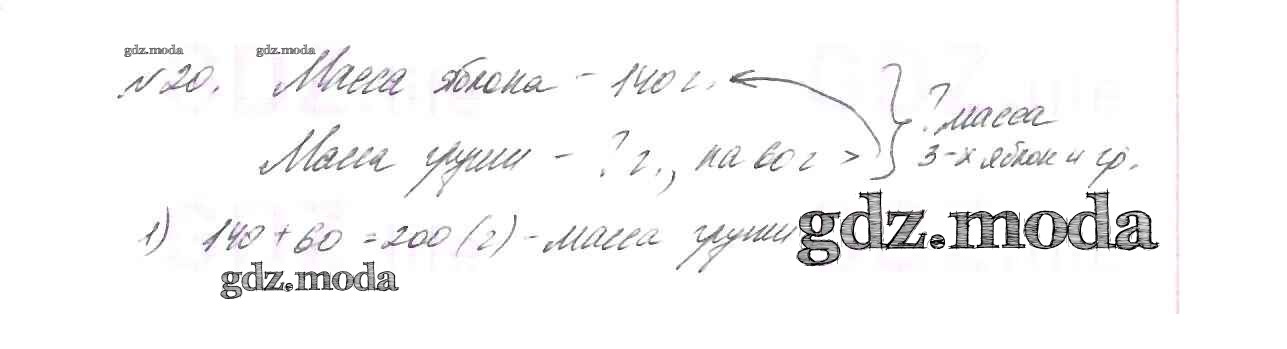 gdz.moda gdz.moda
№20. Масса яблока - 140 г.
Масса груши - ? г., на 60 г >
? масса
3-х яблок и гр.
1) 140 + 60 = 200 (г) - масса груши
gdz.moda
gdz.moda